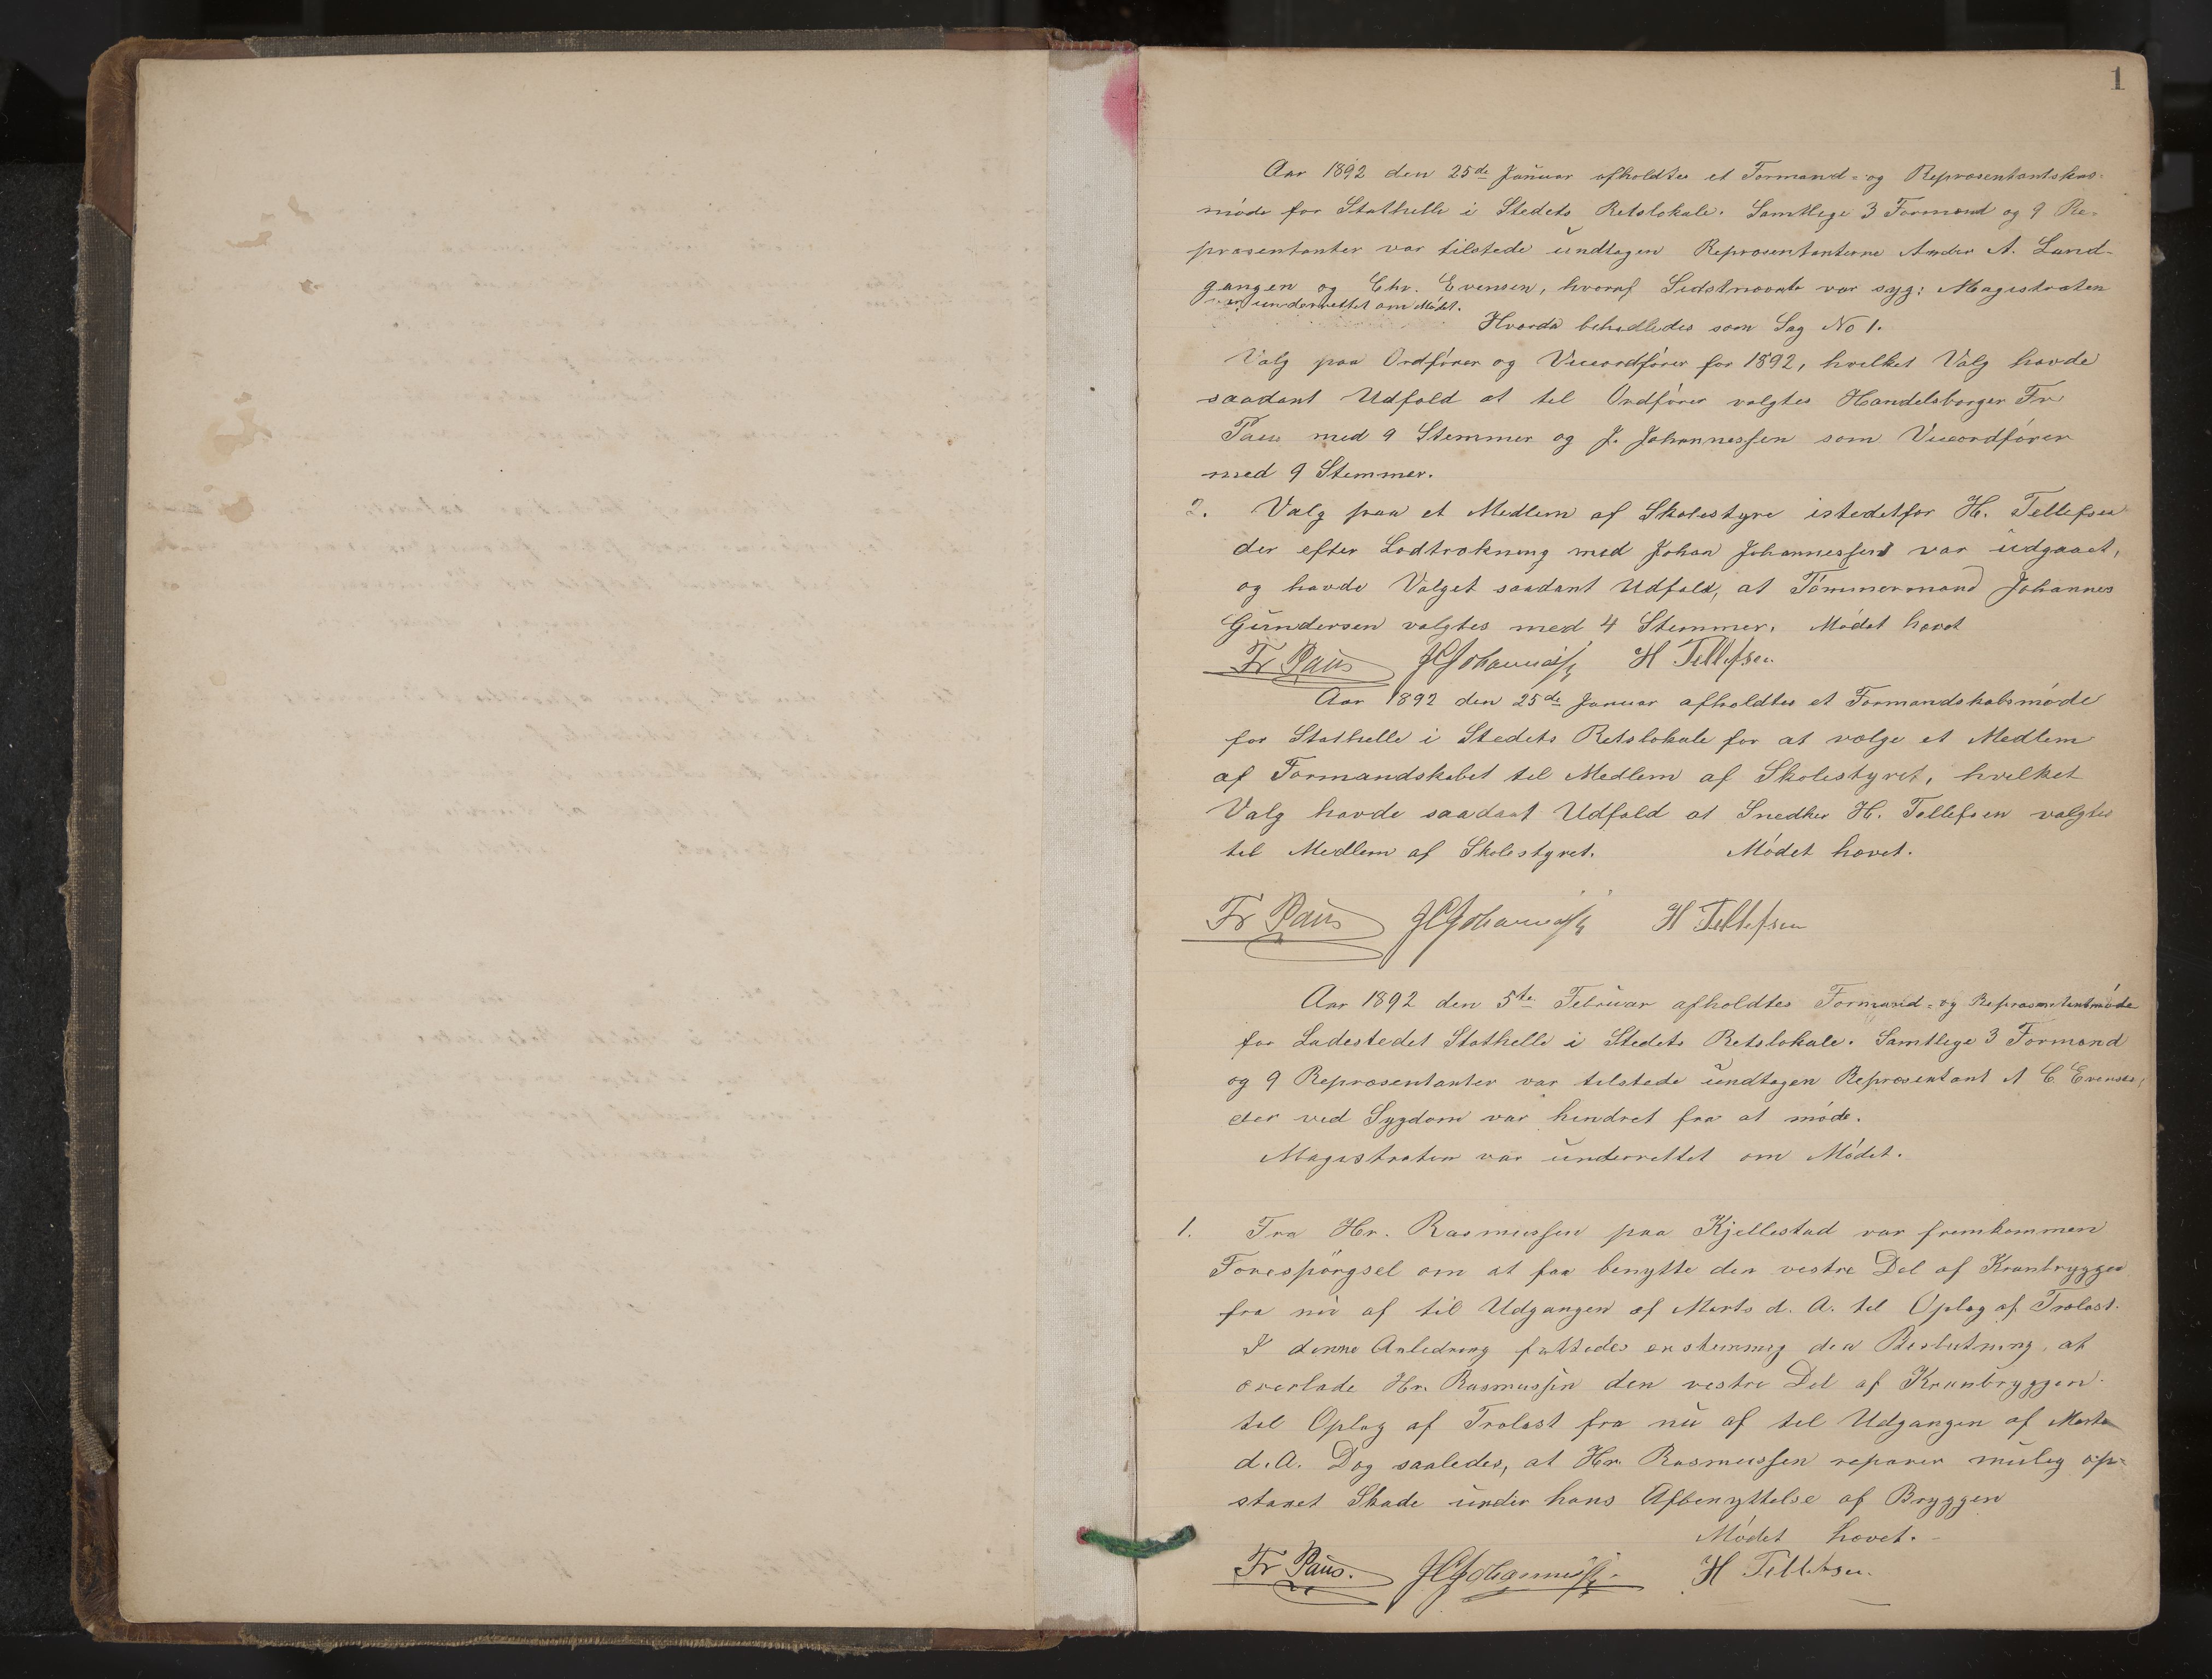 1
Aar 1892 den 25de Januar afholdtes et Formand= og Repræsentantskabs-
møde for Stathelle i Stedets Retslokale. Samtlige 3 Formænd og 9 Re-
præsentanter var tilstede undtagen Repræsentanterne Anders A. Land-
gangen og Chr. Evensen, hvoraf Sidstnævnte var syg: Magistraten
var underrettet om Mødet.
Hvorda behadledes som Sag No 1.
Valg paa Ordfører og Viceordfører for 1892, hvilket Valg havde
saadant Udfald at til Ordfører valgtes Handelsborger Fr.
Paus med 9 Stemmer og J. Johannessen som Viceordfører
med 9 Stemmer.
2. Valg paa et Medlem af Skolestyre istedetfor H. Tellefsen
der efter Lodtrækning med Johan Johannessen var udgaaet,
og havde Valget saadant Udfald, at Tømmermand Johannes
Gundersen valgtes med 4 Stemmer. Mødet hævet
Fr Paus JCJohannessen H Tellefsen
Aar 1892 den 25de Januar afholdtes et Formandskabsmøde
for Stathelle i Stedets Retslokale for at vælge et Medlem
af Formandskabet til Medlem af Skolestyret, hvilket
Valg havde saadant Udfald at Snedker H. Tellefsen valgtes
til Medlem af Skolestyret. Mødet hævet.
Fr Paus JCJohannessen H Tellefsen
Aar 1892 den 5te Februar afholdtes Formand= og Repræsentantmøde
for Ladestedet Stathelle i Stedets Retslokale. Samtlige 3 Formænd
og 9 Repræsentanter var tilstede undtagen Repræsentant A C. Evensen,
der ved Sygdom var hindret fra at møde.
Magistraten var underrettet om Mødet.
1. Fra Hr. Rasmussen paa Kjellestad var fremkommen
Forespørgsel om at faa benytte den vestre Del af Kranbryggen
fra nu af til Udgangen af Marts d. A. til Oplag af Trælast.
I denne Anledning fattedes enstemmig den Beslutning, at
overlade Hr. Rasmussen den vestre Del af Kranbryggen
til Oplag af Trælast fra nu af til Udgangen af Marts
d. A. Dog saaledes, at Hr. Rasmussen reparer mulig op-
staaet Skade under hans Afbenyttelse af Bryggen
Mødet hævet.
Fr Paus. JCJohannessen H Tellefsen.